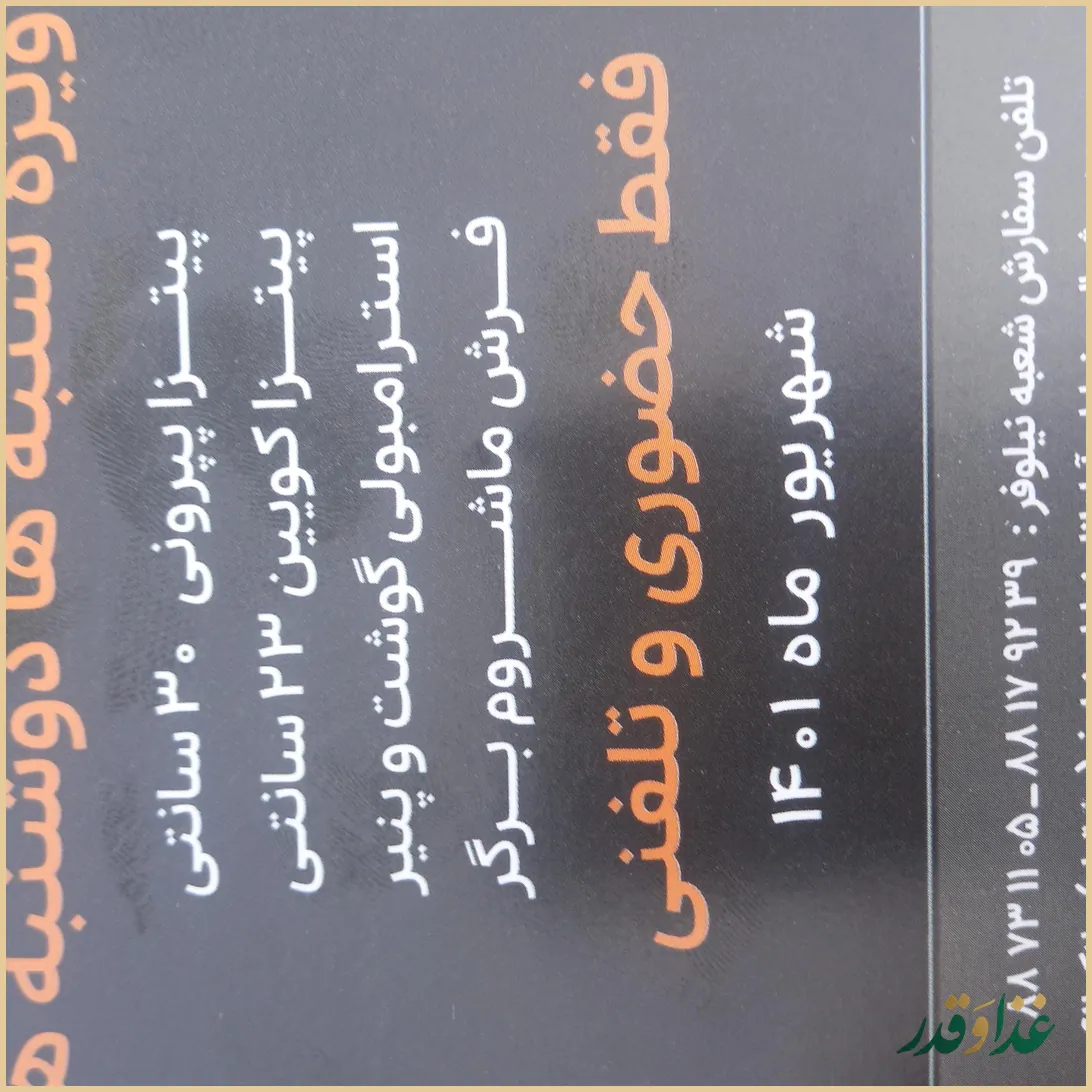 ویژه شنبه ها دوشنبه
پیتزا پپرونی ۳۰ سانتی
پیتزا کویین ۲۳ سانتی
استرامبولی گوشت و پنیر
فرش ماشروم برگر
فقط حضوری و تلفنی
شهریور ماه ۱۴۰۱
تلفن سفارش شعبه نیلوفر : ۸۸ ۱۷ ۹۲ ۳۹ - ۸۸ ۷۳ ۱۱ ۰۵
غذا و قدر